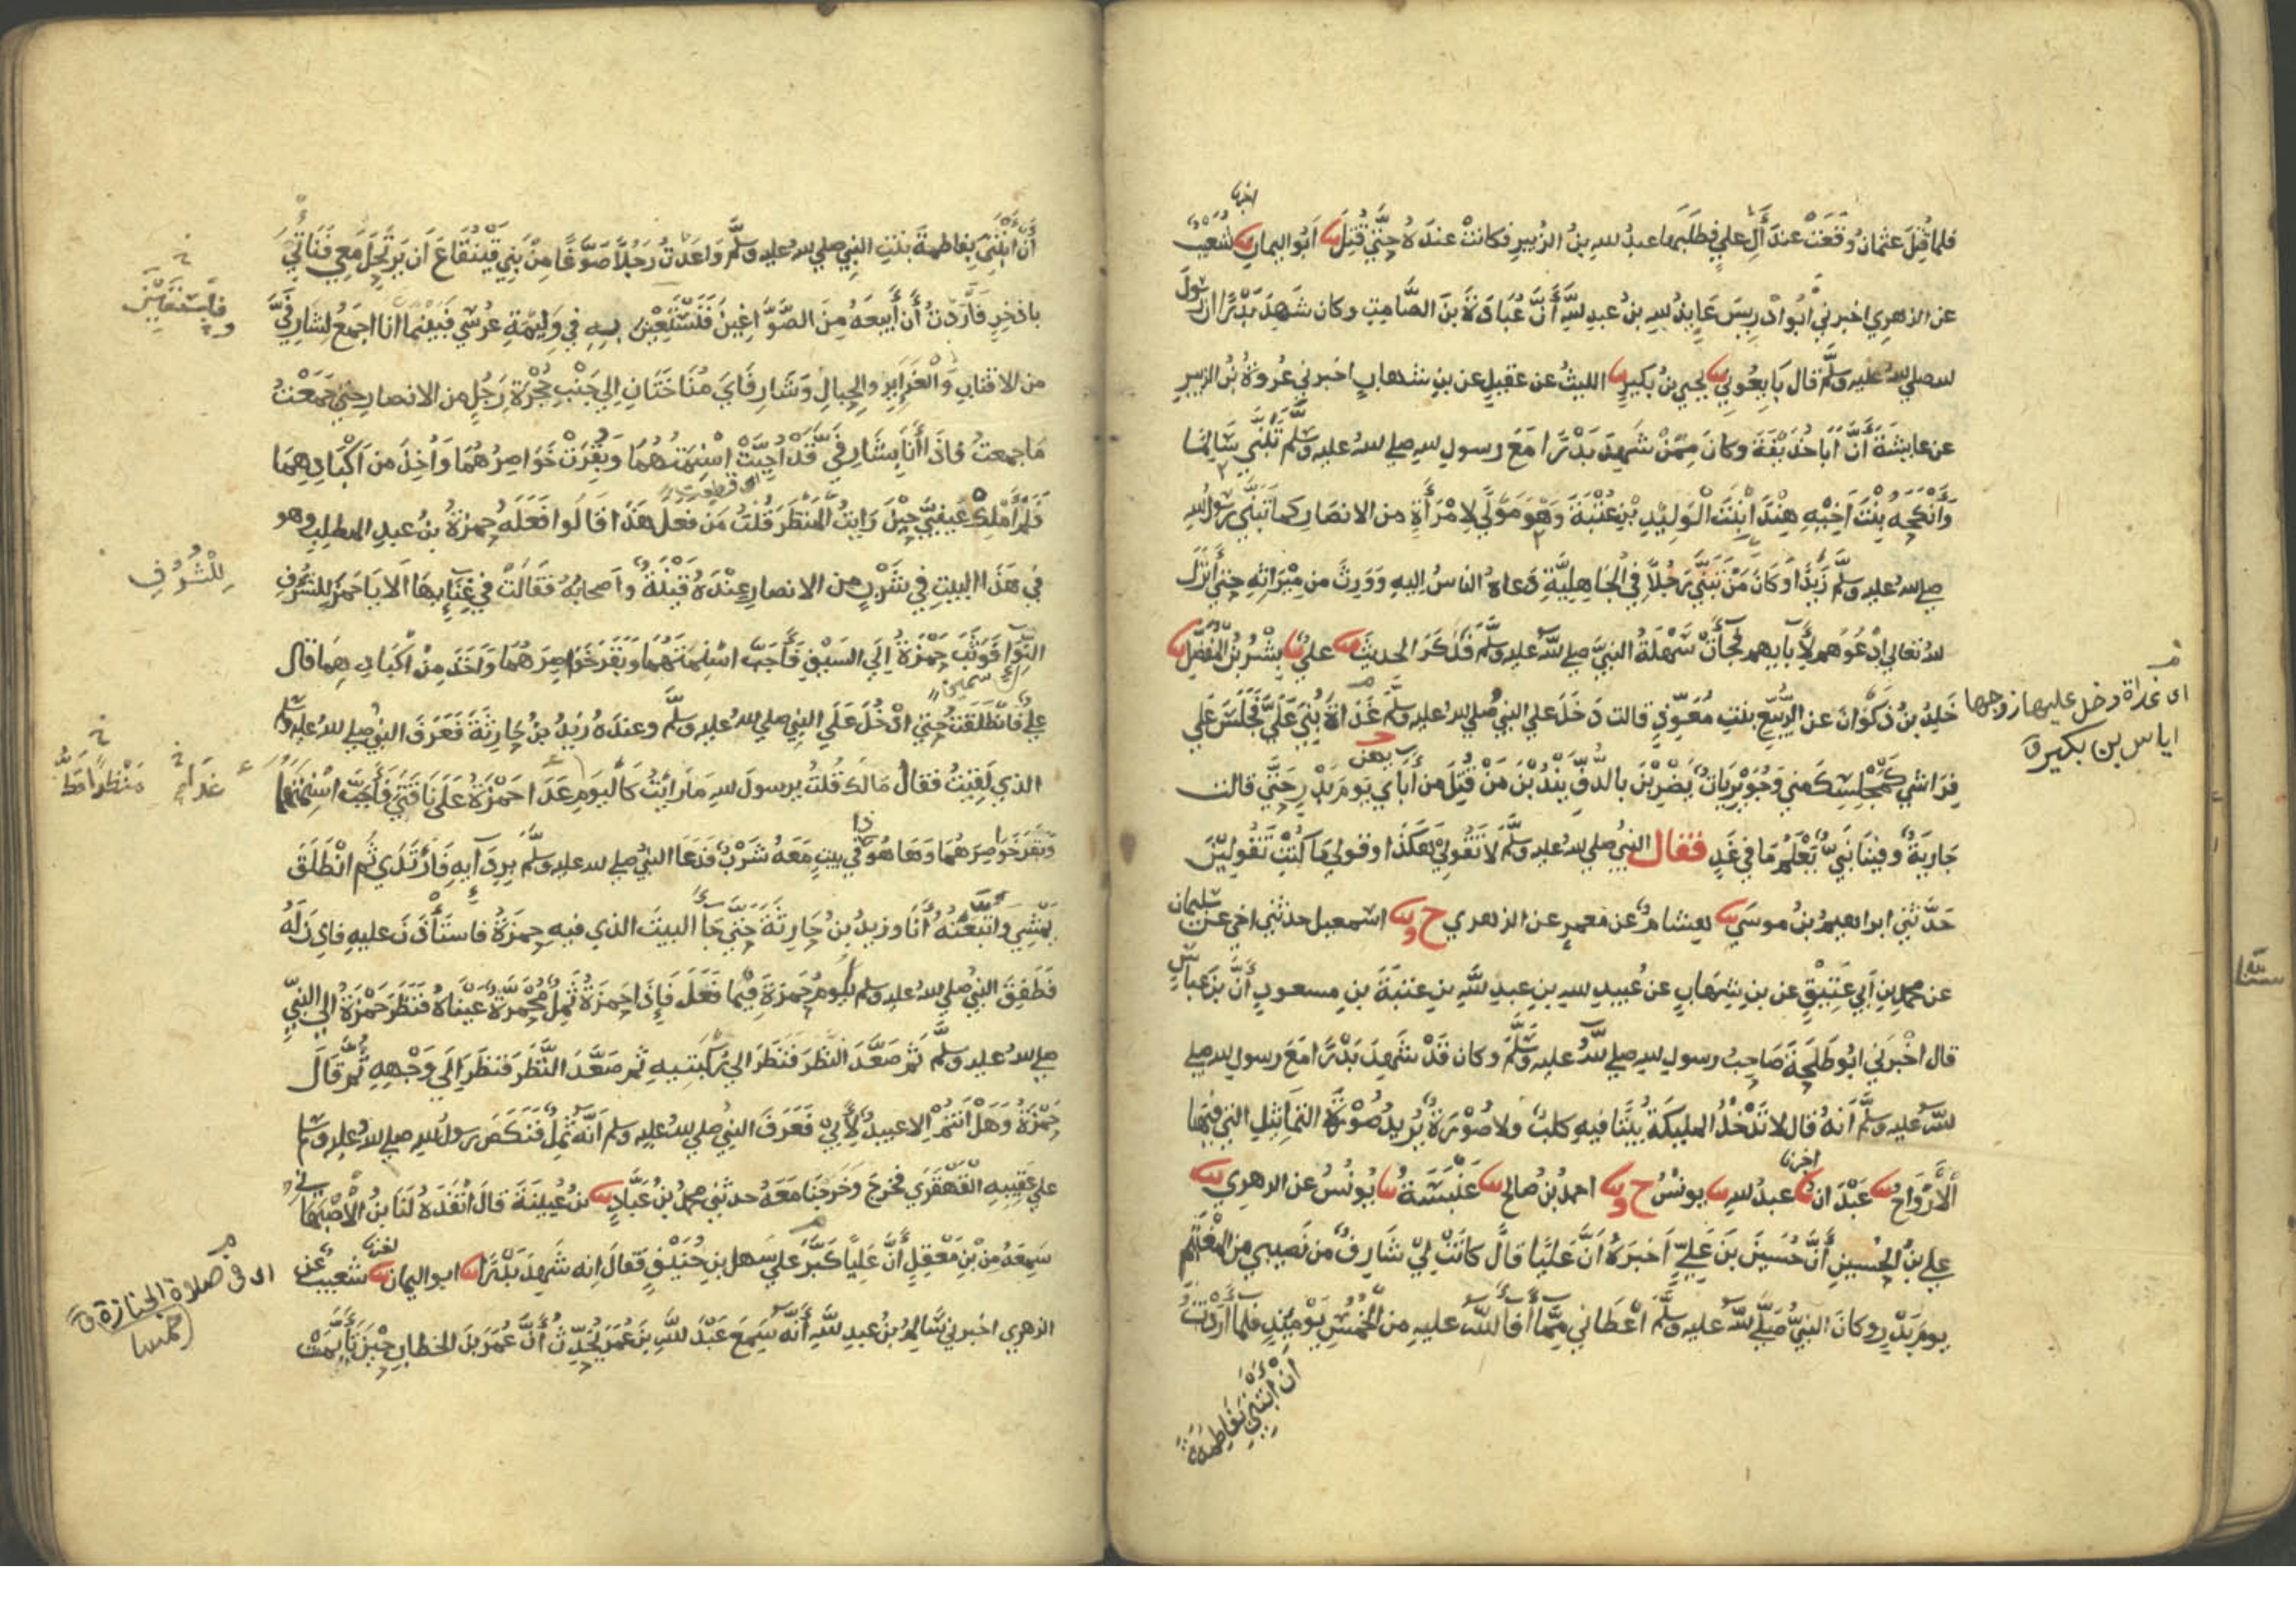 فلما قُتِلَ عثمانُ وَقَعَتْ عندَ آلِ عليٍ فطَلَبَها عبدُ لله بنُ الزُبيرِ فكانتْ عندَهُ حَتَّى قُتِلَ ثنا أبُو اليمانِ ثنا شُعَيْبٌ
اخبرنا
عن الزهري اخبرني أبُو ادْرِيسَ عَايِذُ لله بنُ عبدِ للهِ أَنَّ عُبَادَةَ بنَ الصَّامِتِ وكان شَهِدَ بَدْرًا ان رسُولَ
لله صلي لله عليه وسلَّم قال بَايِعُونِي ثنا يحيي بنُ بُكَيرٍ ثنا الليثُ عن عقيلٍ عن بنِ شهابٍ اخبرني عُروةُ بنُ الزبيرِ
عن عايشَةَ أَنَّ اَبَا حُذَيْفَةَ وكانَ مِمَّنْ شَهِدَ بَدْرًا مَعَ رسولِ لله صلي لله عليه وسلَّم تَبَنَّى سَالِمًا
وَأَنْكَحَهُ بِنْتَ اَخِيْهِ هِنْدَ ابْنَتَ الْوَلِيْدِ بْنِ عُتْبَةَ وَهْوَ مَوْلًي لِامْرَأَةٍ من الانصَارِ كما تَبَنَّي رسُولُ لله
صلي لله عليه وسلَّم زَيْدًا وَكَانَ مَنْ تَبَنَّي رَجُلًا فِي الجَاهِلِيَّةِ دَعاهُ الناسُ اليهِ وَوَرِثَ من مِيْرَاثِهِ حتي أَنْزَلَ
لله تعالي ادْعُوهُم لأَبَايِهِم فجَآءَتْ سَهْلَةُ النبيَّ صلي لله عليه وسلَّم فَذَكَرَ الحديثَ ثنا عليٌ ثنا بِشْرُ بْنُ الْمُفَضَّلِ ثنا
خَلِدُ بنُ ذَكْوَانَ عن الرُّبَيِّعِ بنتِ مُعَوِّذٍ قالت دَخَلَ علي النبيُ صلي لله عليه وسلَّم غَدَاةَ بُنِيَ عَلَيَّ فجَلَسَ عَلي
اى غداة دخل عليها زوجها
اياس بن بكير ق
فِرَاشي كَمَجْلِسِكَ مني وَجُوَيْرِيَاتٌ يَضْرِبْنَ بالدُّفِّ يَنْدُبْنَ مَنْ قُتِلَ من آبَايِ يَومَ بَدْرٍ حَتَّي قالت
بهن
جَارِيَةٌ وفينا نَبِيٌّ يَعْلَمُ مَا فِي غَدٍ فقال النبيُ صلي لله عليه وسلَّم لَا تَقُولِي هَكَذَا وقولي مَا كُنْتِ تَقُولِيْنَ
حَدَّثَنِي ابراهيمُ بنُ موسَي ثنا هشامٌ عن مَعمرٍ عن الزهري ح وثنا اسمعيل حدثني اخي عن سليمان
عن محمد بن أبي عَتِيْقٍ عن بنِ شِهَابٍ عن عُبيدِ لله بنِ عبدِ للهِ بنِ عتبَةَ بنِ مسعودٍ أَنَّ بنَ عباسٍ
قال اخْبَرَنِي ابُو طَلحَةَ صَاحِبُ رسولِ لله صلي للهُ عليه وسلَّم وكان قَدْ شَهِدَ بَدْرًا مَعَ رسولِ لله صلي
لله عليه وسلَّم أَنهُ قال لا تَدْخُلُ المليكَةُ بيتًا فيهِ كلبٌ ولا صُوْرَةٌ يُرِيدُ صُوْرَةَ التماثيلِ التي فيها
اَلْأَرْوَاحُ ثنا عَبْدَانُ ثنا عبدُ لله ثنا يونسُ ح وثنا احمدُ بنُ صالحٍ ثنا عَنْبَسَةُ ثنا يُونُسُ عن الزهري ثنا
اخبرنا
علي بنُ الحُسينِ أَنَّ حُسَيْنَ بنَ عَلِيٍّ اَخبَرَهُ اَنَّ عَليًا قالَ كانَتْ لِيْ شَارِفٌ من نَصيبي مِنَ المغْنَمِ
يومَ بَدْرٍ وكانَ النبيُ صَلَّي للهُ عليه وسلَّم اعْطاني مِمَّا أَفاَ لله عليهِ من الْخُمُسِ يَوْمَيِذٍ فلمآ اَرَدْتُ
انْ ابْتَنِيَ بفَاطِمَةَ
أنْ ابْتَنِيَ بفاطمةَ بنتِ النبِي صلي لله عليه وسلَّم وَاعَدْتُ رَجُلًا صَوَّغًا مِنْ بَنِي قَيْنُقَاعَ اَن يَرْتَحِلَ مَعِي فَنَاتِيَ
باذخِرٍ فَأرَدْتُ أَنْ أَبِيعَهُ مِنَ الصَّوَّاغِينَ فَنَسْتَعِيْنُ بِهِ فِي وَلِيْمَةِ عُرْسِي فَبَيْنما انا اجمَعُ لِشَارِفَيَّ
فأستعين
من الاقتابِ وَالْغَرَايِرِ والحِبالِ وَشَارِفَايَ مُنَاخَتَانِ الي جَنْبِ حُجْرَةِ رَجُلٍ من الانصارِ حتي جَمَعْتُ
مَا جمعتُ فاذَا أَنَا بِشَارِفَيَّ قَدْ أُجِبَّتْ اسْنِمَتُهُمَا وَبُقِرَتْ خَوَاصِرُهُمَا وَاُخِذَ من اَكْبَادِهِمَا
اى قطعت
فَلَمْ اَمْلِكْ عَيْنَيَّ حِيْنَ رَايتُ المَنْظَرَ قُلتُ مَن فَعلَ هَذَا قَالُوا فَعَلَهُ حمزَةُ بنُ عبدِ المطلبِ وهو
في هَذَا البيتِ في شَرْبٍ من الانصارِ عِنْدَهُ قَيْنَةٌ وأَصحابُهُ فَقَالَتْ في غِنَايِهَا اَلا يَا حَمزَ للشُّرُفِ
لِلْشُرُفِ
النِّوَا فَوَثَبَ حَمْزَةُ اِلَي السَيْفِ فَأَجَبَّ اسْنِمَتَهُمَا وَبَقَرَ خَوَاصِرَهُمَا وَاَخَذَ مِنْ اَكْبَادِهِمَا قال
اى سمين
عليٌ فَانْطَلَقتُ حتي ادْخُلَ عَلَي النبي صلي لله عليه وسلَّم وعندَهُ زَيدُ بنُ حَارِثَةَ فَعَرَفَ النبيُ صلي لله عليه وسلم
الذي لَقِيتُ فقال مَالَكَ قُلتُ يرسولَ لله مَا رَايْتُ كَاليَومِ عَدَا حَمْزَةُ عَلَي نَاقَتَيَّ فَأَجَبَّ اسْنِمَتَهُمَا
غدا
مَنْظَرًا قَطُّ
وَبَقَرَ خَوَاصِرَهُمَا وَهَا هُوَ ذا في بيتٍ مَعَهُ شَرْبٌ فَدَعَا النبيُ صلي لله عليه وسلَّم بِرِدَآيِهِ فَارْتَدَي ثُم انْطَلَقَ
يَمْشِي وَاتَّبَعْتُهُ أَنَا وزيدُ بنُ حَارِثَةَ حَتي جَآ البيتَ الذي فيهِ حَمزَةُ فاستَأْذَنَ عليهِ فاَذِنَ لَهُ
فَطَفِقَ النبيُ صلي لله عليه وسلم يَلُومُ حَمزَةَ فِيْمَا فَعَلَ فَإِذَا حَمزَةُ ثَمِلٌ مُحْمَرَّةٌ عَيْنَاهُ فَنَظَرَ حَمْزَةُ الي النبيِ
صلي لله عليه وسلَّم ثُمَّ صَعَّدَ النظَرَ فَنَظَرَ الي رُكْبَتِيهِ ثم صَعَّدَ النَّظَرَ فنظَرَ الَي وَجْهِهِ ثُمَّ قَالَ
حَمْزَةُ وَهَلْ أَنتُمْ الا عبيدٌ لأَبِيْ فَعَرَفَ النبيُ صلي لله عليه وسلم اَنَّهُ ثَمِلٌ فَنَكَصَ رسولُ لله صلي لله عليه وسلم
علي عَقِبيهِ الْقَهْقَرَي فخرجَ وَخَرجنَا مَعَهُ حدثني محمدُ بنُ عَبَّادٍ ثنا بنُ عُيينَةَ قالَ انْفَذَهُ لَنَا بنُ الْأَصْبَهَانِي
سَمِعَهُ مِنْ بْنِ مَعْقِلٍ أَنَّ عَلِيًا كَبَّرَ علي سَهلِ بنِ حُنَيْفٍ فَقالَ اِنه شَهِدَ بَدْرًا ثنا ابو اليمان ثنا شعيبٌ عن
اخبرنا
اى فى صلاة الجنازة ق
خمسا
الزهري اخبرني سَالِمُ بنُ عبدِ للهِ أَنَّهُ سَمِعَ عَبْدَ لله بنَ عُمَرَ يُحَدِّثُ أَنَّ عُمَرَ بنَ الخطابِ حِيْنَ تَأَيَّمَتْ